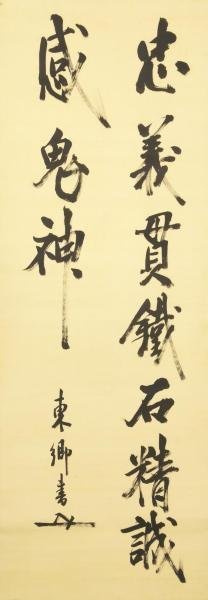 忠義貫鐵石精誠
感鬼神
東郷書